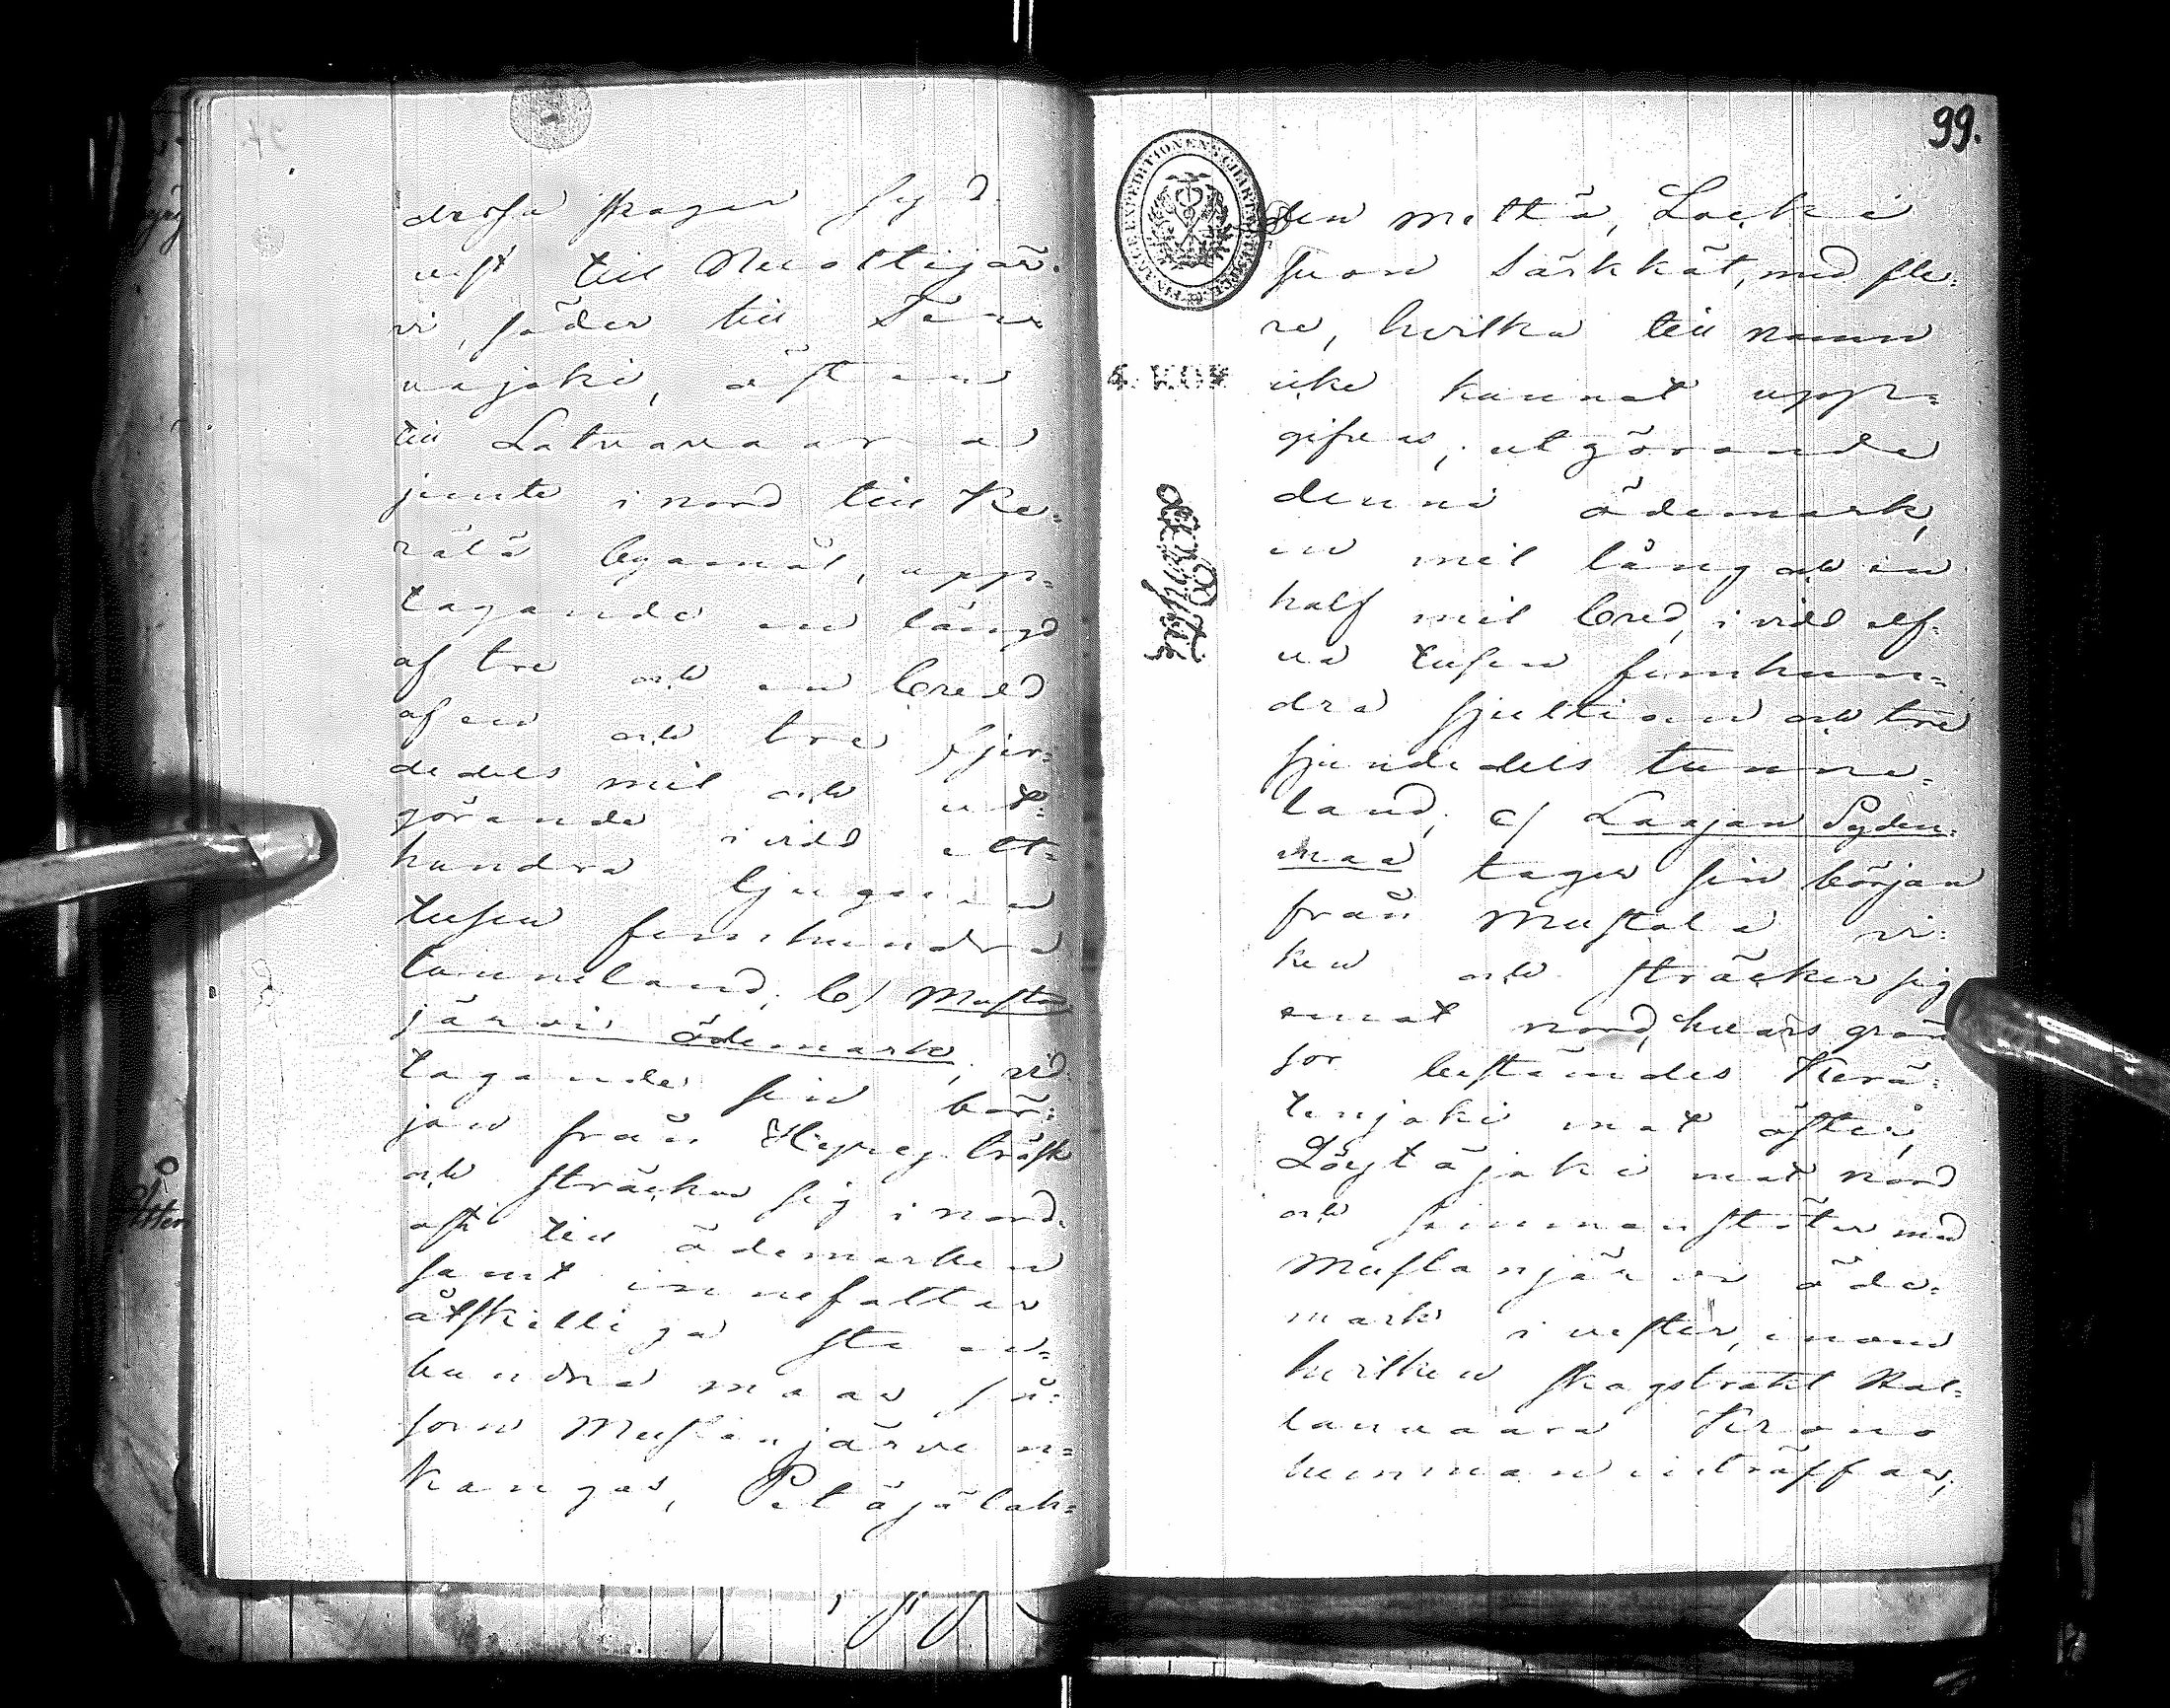 dessa skogar syd
vest till Nuottijär-
vi, söder till
vajoki, östan
till Latvavaara
jemte i nord till Ke-
rälä byamål, upp-
tagande en längd
af tre och en bredd
af en och tre fjer-
dedels mil och ut-
görande i vidd ett-
hundra tjugu
tusen femhundra
tunneland; b) Musta
järvis ödemark,
tagande sin bör-
jan från träsk
och sträcker sig i nord-
ost till ödemarken
samt innefattar
åtskilliga
hundra maar så-
som Mustanjärven-
kangas, Petäjälak-
99.
den mettä, Locki
suon Särkkät, med fle-
re, hvilka till namn
icke kunnat upp-
gifvas, utgörande
denna ödemark,
en mil lång och en
half mil bred, i vidd elf-
va tusen femhun-
dra sjuttioen och tre
sjundedels tunne-
land; c) Laajan Syden-
maa tager sin början
från Mustola vi-
ken och sträcker sig
emot nord, hvars grän
sor bestämdes Kerä-
tenjoki mot öster,
Löytäjoki mot nord
och sammanstöter med
Mustanjärvi öde-
mark i vester, inom
hvilken skogstrakt Kal-
lanvaara Krono
hemman inträffar,